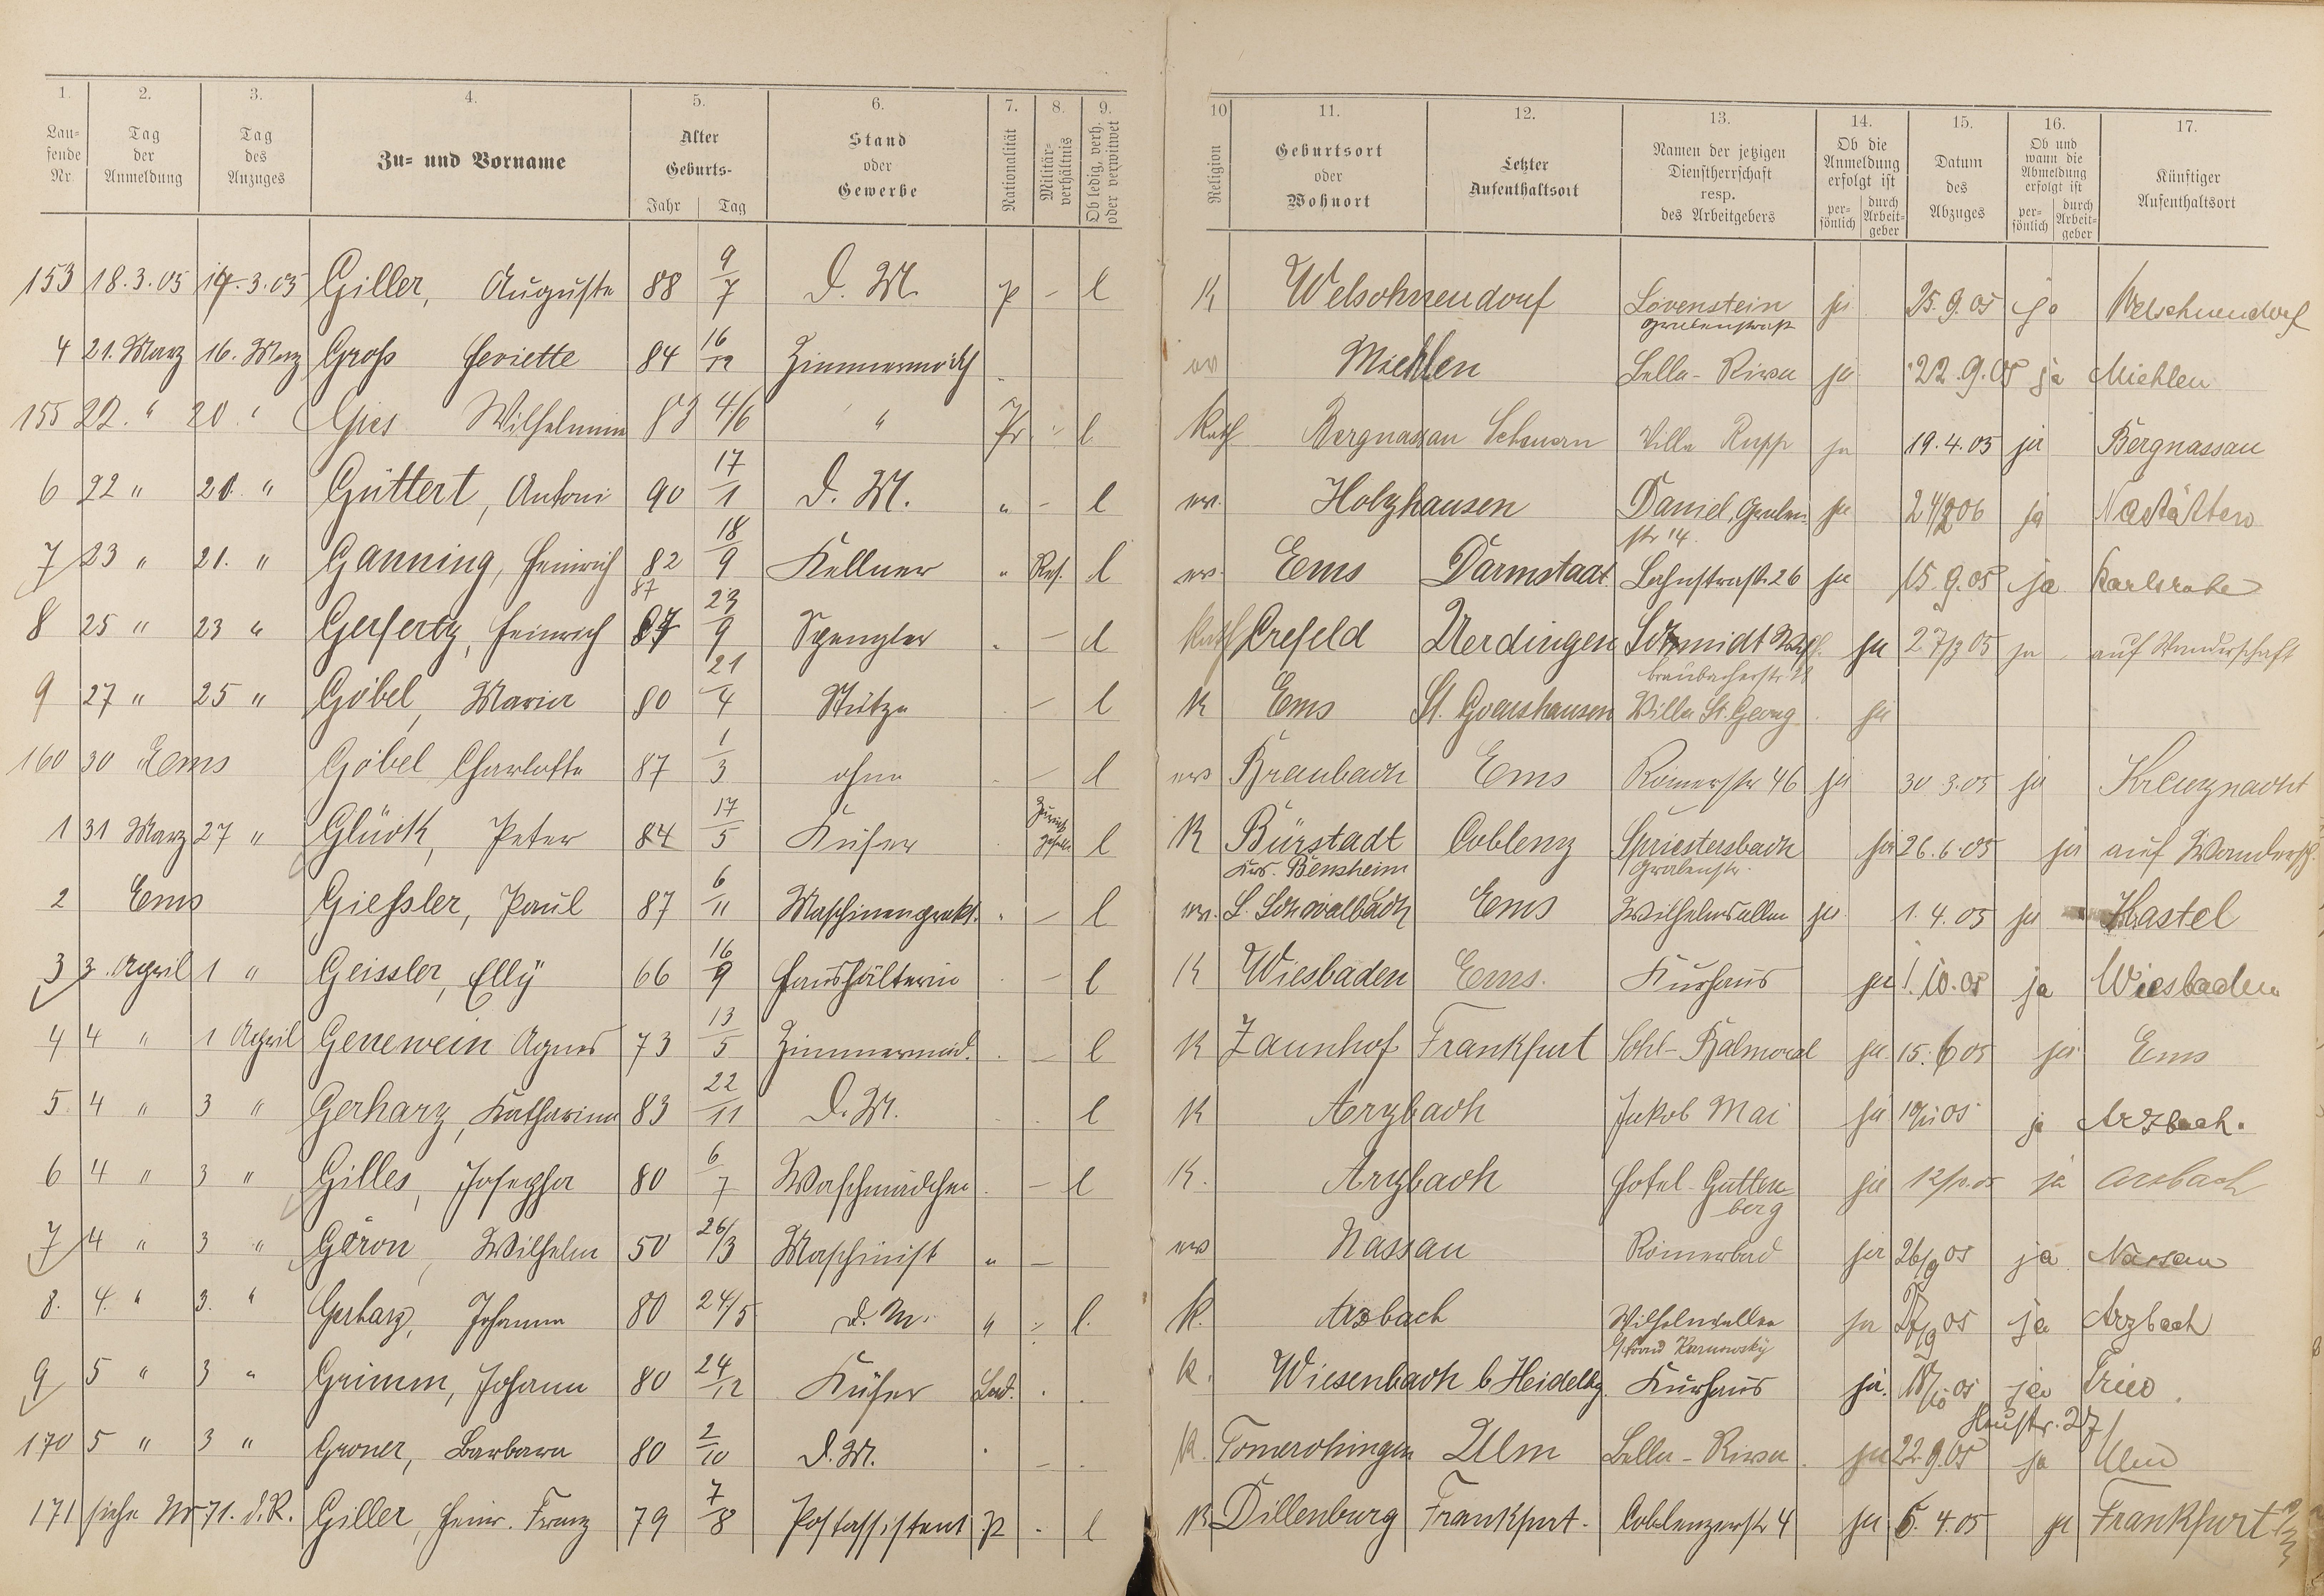 1. 2. 3. 4. 5. 6. 7. 8. 9. 10 11. 12. 13. 14. 15. 16. 17.
Lau-fende Nr. Tag der Anmeldung Tag des Anzuges Zu- und Vorname Alter Geburts- Jahr Tag Stand oder Gewerbe Nationalität Militär-verhältnis Ob ledig, verh. oder verwitwet Religion Geburtsort oder Wohnort Letzter Aufenthaltsort Namen der jetzigen Dienstherrschaft resp. des Arbeitgebers Ob die Anmeldung erfolgt ist per-sönlich durch Arbeit-geber Datum des Abzuges Ob und wann die Abmeldung erfolgt ist per-sönlich durch Arbeit-geber Künftiger Aufenthaltsort
153 18.3.05 14.3.05 Giller, Auguste 88 9/7 D. M. p - l K Welschneudorf Lövenstein Grabenstraße ja 25.9.05 ja Welschneudorf
4 21. März 16. März Groß Heriette 84 16/12 Zimmermdch ev Miehlen Bella-Riwa ja 22.9.05 ja Miehlen
155 22. " 20 " Gies Wilhelmine 83 4/6 " Pr - l Kath Bergnassau Scheuern Villa Rupp ja 19.4.05 ja Bergnassau
6 22 " 21. " Güttert, Antoni 90 17/1 D. M. " - l ev. Holzhausen Daniel, Graben str 14. ja 24/2 06 ja Nastätten
7 23 " 21. " Ganning, Heinrich 82 18/9 Kellner " Res. l ev. Ems Darmstadt Lahnstraße 26 ja 15.9.05 ja Karlsruhe
8 25 " 23 " Gerfertz, Heinrich 87 87 23/9 Spengler " - l Kath Crefeld Uerdingen Schmidt Braubacherstr ja 27/3 05 ja auf Wanderschaft
9 27 " 25 " Göbel, Maria 80 21/4 Stütze - l K Ems St. Goarshausen Villa St. Georg ja
160 30 Ems Göbel Charlotte 87 1/3 ohne - l ev Braubach Ems Römerstr 46 ja 30 3.05 ja Kreuznacht
1 31 März 27 " Glück, Peter 84 17/5 Küfer l K Bürstadt Krs. Bensheim Coblenz Spriestersbach Grabenstr. ja 26.6.05 ja auf Wandersch.
2 Ems Gießler, Paul 87 6/11 Maschinenprakt. " - l ev. L. Schwalbach Ems Wilhelmsallee ja 1.4.05 ja Kastel
3 3. April 1 " Geissler, Elly 66 16/9 Haushälterin - l K Wiesbaden Ems. Kurhaus ja 1.10.05 ja Wiesbaden
4 4 " 1 April Genewein Agnes 73 13/5 Zimmermäd. - l K Zaunhof Frankfurt Schl-Balmoral ja 15.6 05 ja Ems
5. 4 " 3 " Gerharz, Katharina 83 22/11 D. M. l K Arzbach Jakob Mai ja 05 ja Arzbach.
6 4 " 3 " Gilles, Josepha 80 6/7 Waschmädchen - l K. Arzbach Hotel Guttenberg ja 12/10.05 ja Arzbach
7 4 " 3 " Göron, Wilhelm 50 26/3 Maschinist " - ev Nassau Römerbad ja 26/9 05 ja Nassau
8. 4. " 3. " Gerharz, Johanna 80 24/5 d. M. " - l. K. Arzbach Wilhelmsallee ja 27/9 05 ja Arzbach
9 5 " 3 " Grimm, Johann 80 24/12 Küfer Bad. K. Wiesenbach b Heidelbg. Kurhaus ja. 18/10 05 ja
170 5 " 3 " Groner, Barbara 80 2/10 D. M. - K. Tomerdingen Ulm Bella-Riwa ja 22.9.05 ja Ulm
171 siehe Nr 71. d. R. Giller, Heinr. Franz 79 7/8 Postassistent p - l K Dillenburg Frankfurt. Coblenzerstr 4 ja 5.4.05 ja Frankfurt